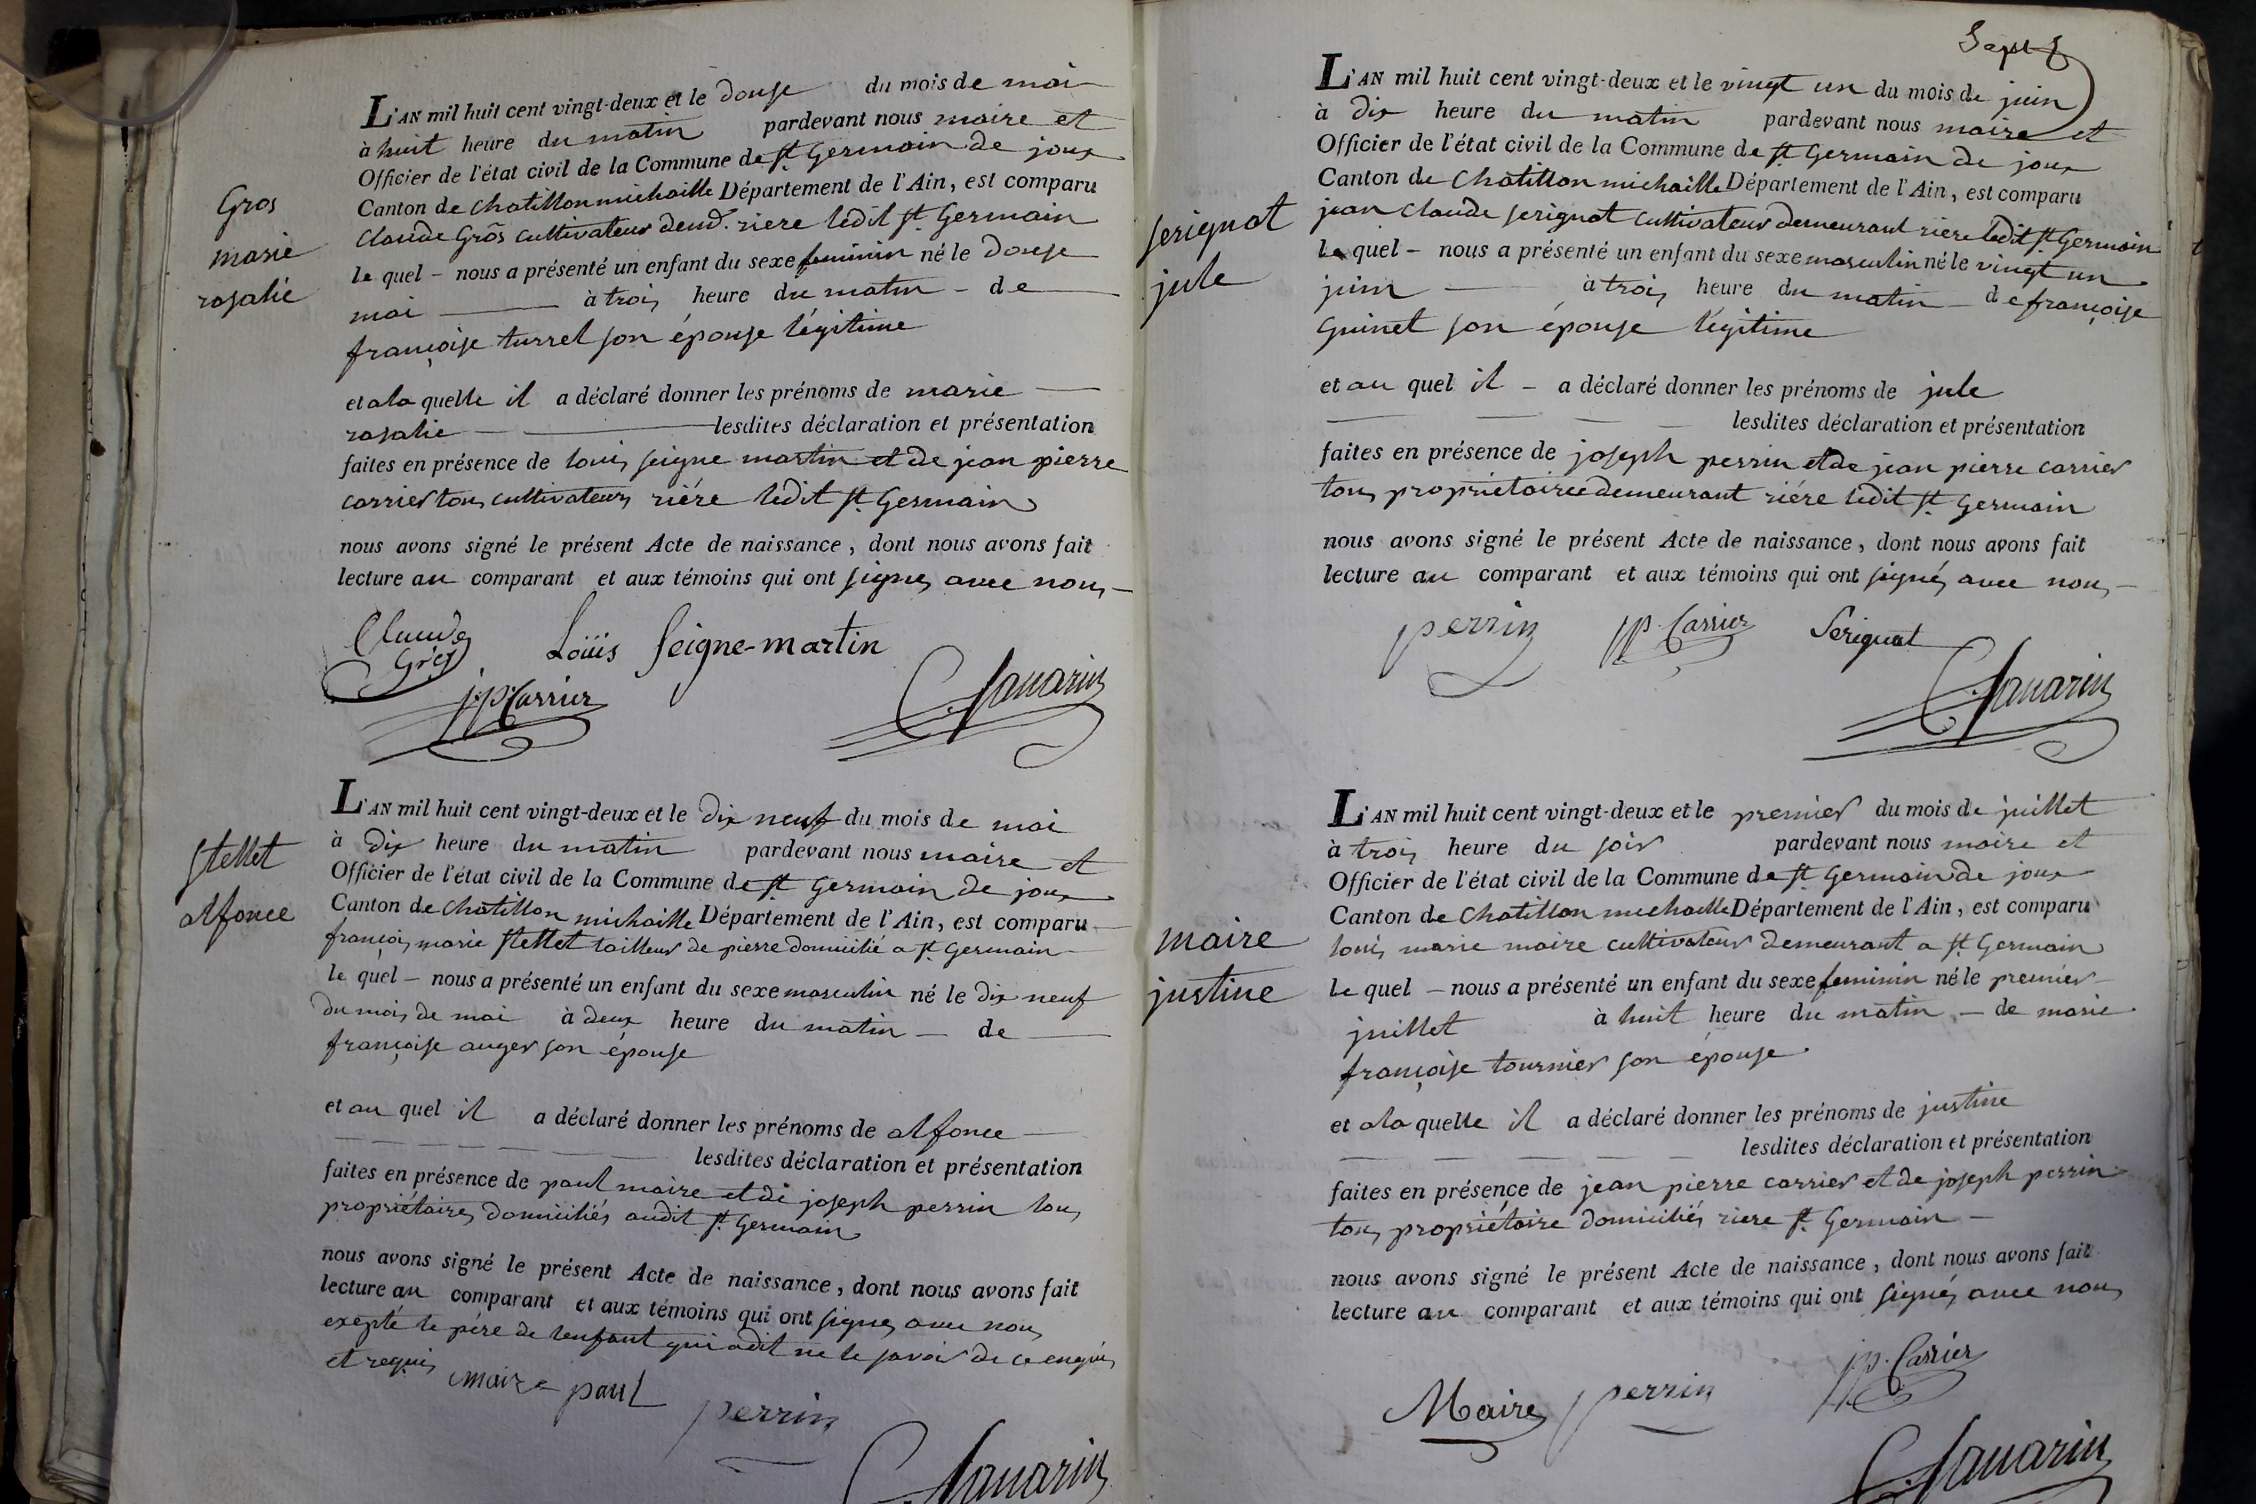 Gros
marie
rosalie
L'AN mil huit cent vingt-deux et le douse du mois de mai
à huit heure du matin pardevant nous maire et
Officier de l'état civil de la Commune de st Germain de joux
Canton de chatillon michaille Département de l'Ain, est comparu
claude Gros cultivateur demt. riere ledit st Germain
le quel – nous a présenté un enfant du sexe feminin né le douse
mai à trois heure du matin – de
françoise turrel son épouse légitime
et a la quelle il a déclaré donner les prénoms de marie
rosalie lesdites déclaration et présentation
faites en présence de louis seigne martin et de jean pierre
carrier tous cultivateurs riére ledit st Germain
nous avons signé le présent Acte de naissance, dont nous avons fait
lecture au comparant et aux témoins qui ont signés avec nous
Claude Loüis Seigne-martin
Gros
jp Carrier C. Savarin
Stellet
alfonce
L'AN mil huit cent vingt-deux et le dix neuf du mois de mai
à dix heure du matin pardevant nous maire et
Officier de l'état civil de la Commune de st Germain de joux
Canton de chatillon michaille Département de l'Ain, est comparu
françois marie stellet tailleur de pierre domicilié a st Germain
le quel – nous a présenté un enfant du sexe masculin né le dix neuf
du mois de mai à deux heure du matin – de
françoise auger son épouse
et au quel il a déclaré donner les prénoms de alfonce
lesdites déclaration et présentation
faites en présence de paul maire et de joseph perrin tous
propriétaires domiciliés audit st Germain
nous avons signé le présent Acte de naissance, dont nous avons fait
lecture au comparant et aux témoins qui ont signés avec nous
exepté le pére de lenfant qui a dit ne le savoir de ce enquis
et requis
maire paul perrin
C. Savarin
Sept
serignat
jule
L'AN mil huit cent vingt-deux et le vingt un du mois de juin
à dix heure du matin pardevant nous maire et
Officier de l'état civil de la Commune de st Germain de joux
Canton de chatillon michaille Département de l'Ain, est comparu
jean claude serignat cultivateur demeurant riere ledit st Germain
le quel – nous a présenté un enfant du sexe masculin né le vingt un
juin à trois heure du matin – de françoise
Guinet son épouse légitime
et au quel il – a déclaré donner les prénoms de jule
lesdites déclaration et présentation
faites en présence de joseph perrin et de jean pierre carrier
tous propriétaire demeurant riére ledit st Germain
nous avons signé le présent Acte de naissance, dont nous avons fait
lecture au comparant et aux témoins qui ont signés avec nous
perrin jp. Carrier Serignat
C. Savarin
maire
justine
L'AN mil huit cent vingt-deux et le premier du mois de juillet
à trois heure du soir pardevant nous maire et
Officier de l'état civil de la Commune de st Germain de joux
Canton de chatillon michaille Département de l'Ain, est comparu
louis marie maire cultivateur demeurant a st Germain
le quel – nous a présenté un enfant du sexe feminin né le premier
juillet à huit heure du matin – de marie
françoise tournier son épouse
et a la quelle il a déclaré donner les prénoms de justine
lesdites déclaration et présentation
faites en présence de jean pierre carrier et de joseph perrin
tous propriétaire domiciliés riere st Germain
nous avons signé le présent Acte de naissance, dont nous avons fait
lecture au comparant et aux témoins qui ont signés avec nous
Maire perrin jp. Carrier
C. Savarin